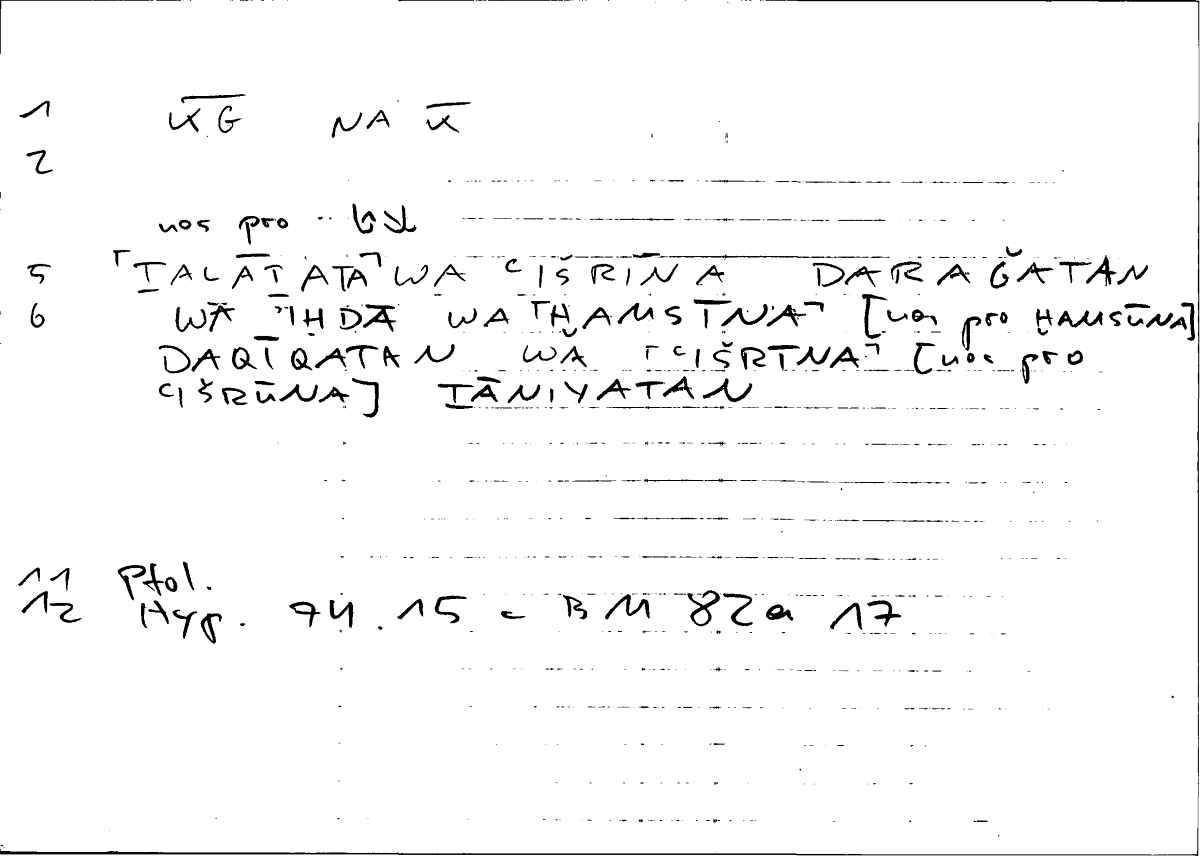 1 K̅G̅ NA K̅
2
nos pro ..
5 ⌜ṮALĀṮATA⌝ WA ʿIŠRĪNA DARAǦATAN
6 WA ʾIḤDĀ WA ⌜ḪAMSĪNA⌝ [nos pro ḪAMSŪNA]
DAQĪQATAN WA ⌜ʿIŠRĪNA⌝ [nos pro
ʿIŠRŪNA] ṮĀNIYATAN
11 Ptol.
12 Hyp. 94.15 = BM 82a 17